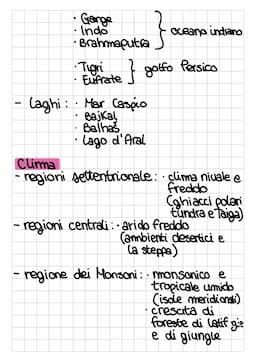 · Gange
· Indo } oceano indiano
· Brahmaputra
· Tigri } golfo Persico
· Eufrate
- Laghi: · Mar Caspio
· Bajkal
· Balhaš
· Lago d'Aral
Clima
- regioni settentrionale: · clima nivale e
freddo
(ghiacci polari
tundra e Taiga)
- regioni centrali: · arido freddo
(ambienti desertici e
la steppa)
- regione dei Monsoni: · monsonico e
tropicale umido
(isole meridionali)
· crescita di
foreste di latif
e di giungle